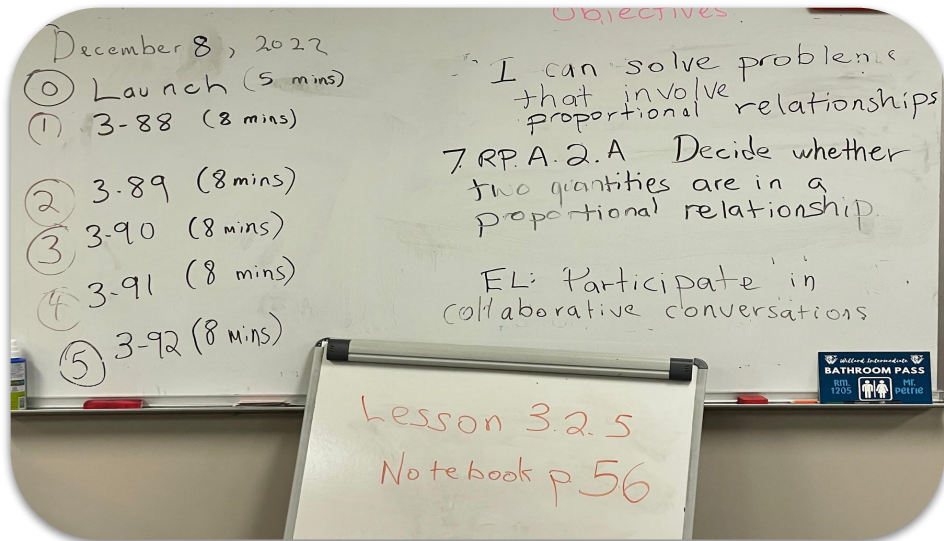 December 8, 2022
0 Launch (5 mins)
1 3-88 (8 mins)
2 3-89 (8 mins)
3 3-90 (8 mins)
4 3-91 (8 mins)
5 3-92 (8 mins)
Objectives
I can solve problems
that involve
proportional relationships
7.RP.A.2.A Decide whether
two quantities are in a
proportional relationship.
EL: Participate in
collaborative conversations
Willard Intermediate
BATHROOM PASS
RM. 1205
Mr. Petrie
Lesson 3.2.5
Notebook p. 56